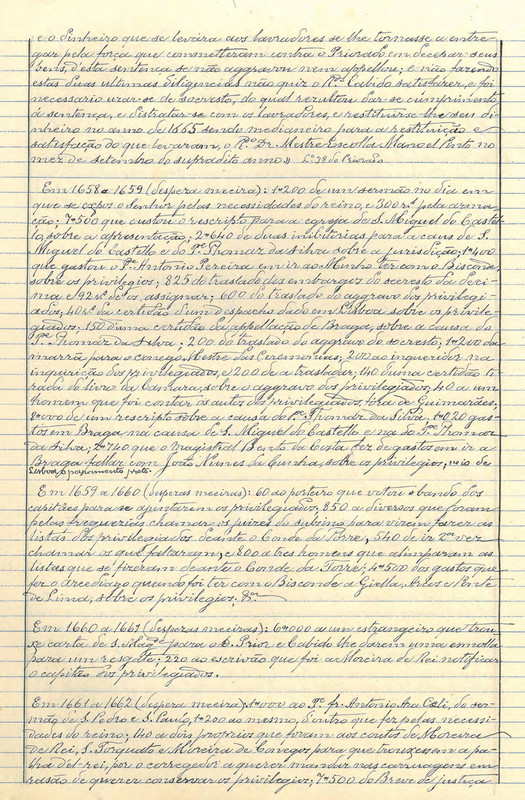 e o dinheiro que se levaria aos lavradores se lhe tornasse a entre-
gar pela força que commetteram contra o Priorado em decerar seus
bens, d'esta sentença se não aggravou nem appellou; e não fazendo
estas duas ultimas diligencias não quiz o R.mo Cabido satisfazer, e foi
necessario uzar-se de socresto, do qual rezultou dar-se cumprimento
á sentença, e distratar-se com os lavradores, e restituir-se lhe seu di-
nheiro no anno de 1665 sendo medianeiro para a restituição e
satisfação do que levaram, o R.do Dr. Mestre Escolla Manoel Pinto no
mez de setembro do supradito anno.» L.º 3º do Priorado
Em 1658 a 1659 (despera meeira): 1$200 de um sermão no dia em
que se expos o Senhor pelas necessidades do reino, e 300 rs. pela arma-
ção; 7$500 que custou o rescripto para a egreja de S. Miguel do Castel-
lo, sobre a apresentação; 2$640 de duas militorias para a causa de S.
Miguel do Castello e do P.e Thomaz da Silva sobre a jurisdicção; 1$400
que gastou o P.e Antonio Pereira em ir ao Minho ter com o Bisconde,
sobre os privilegios; 825 do traslado dos embargos do secresto da deci-
ma e 92 rs. de os assignar; 600 do traslado do aggravo dos privilegi-
ados; 40 rs. da certidão d'um despacho dado em Lisboa sobre os privile-
giados; 150 d'uma certidão da appellação de Braga, sobre a causa do
P.e Thomaz da Silva; 200 do traslado do aggravo do socresto; 1$200 da
marrã para o conego Mestre das Ceremonias; 200 ao inqueridor na
inquirição dos privilegiados, e 200 de a trasladar; 140 d'uma certidão ti-
rada do livro da Camara, sobre o aggravo dos privilegiados; 40 a um
homem que foi contar os autos dos privilegiados, fóra de Guimarães;
8$000 de um rescripto sobre a causa do P.e Thomaz da Silva; 1$020 gas-
tos em Braga na causa de S. Miguel do Castello e na do P.e Thomaz
da Silva; 2$740 que o Magistral Bento da Costa fez de gastos em ir a
Braga fallar com João Nunes da Cunha, sobre os privilegios; veio de
Lisboa o
Em 1659 a 1660 (desperas meeiras): 60 ao porteiro que votou o bando dos
capitães para se ajuntarem os privilegiados; 850 a diversos que foram
pelas freguezias chamar os juizes do subsino para virem fazer as
listas dos privilegiados deante o Conde da Torre; 540 de ir 2.ª vez
chamar os que faltaram; e 800 a tres homens que alimparam as
listas que se fizeram deante o Conde da Torre; 4$500 dos gastos que
fez o Arcediago quando foi ter com o Bisconde a Giella, Arcos e Ponte
de Lima, sobre os privilegios, &.ª
Em 1660 a 1661 (desperas meeiras): 6$000 a um estrangeiro que trou-
xe carta de S. Mag.de para o D. Prior e Cabido lhe darem uma esmolla
para um resgate; 220 ao escrivão que foi a Moreira de Rei notificar
o capitão dos privilegiados.
Em 1661 a 1662 (despera meeira): 1$000 ao P.e fr. Antonio Ara Coeli, do ser-
mão de S. Pedro e S. Paulo, 1$200 ao mesmo, d'outro que fez pelas necessi-
dades do reino; 140 a dois proprios que foram aos coutos de Moreira
de Rei, S. Torquato e Moreira de Conegos para que trouxessem a pa-
lha d'el-rei, por o corregedor a querer mandar nas carruagens em
rasão de querer conservar os privilegios; 7$500 do Breve de justiça